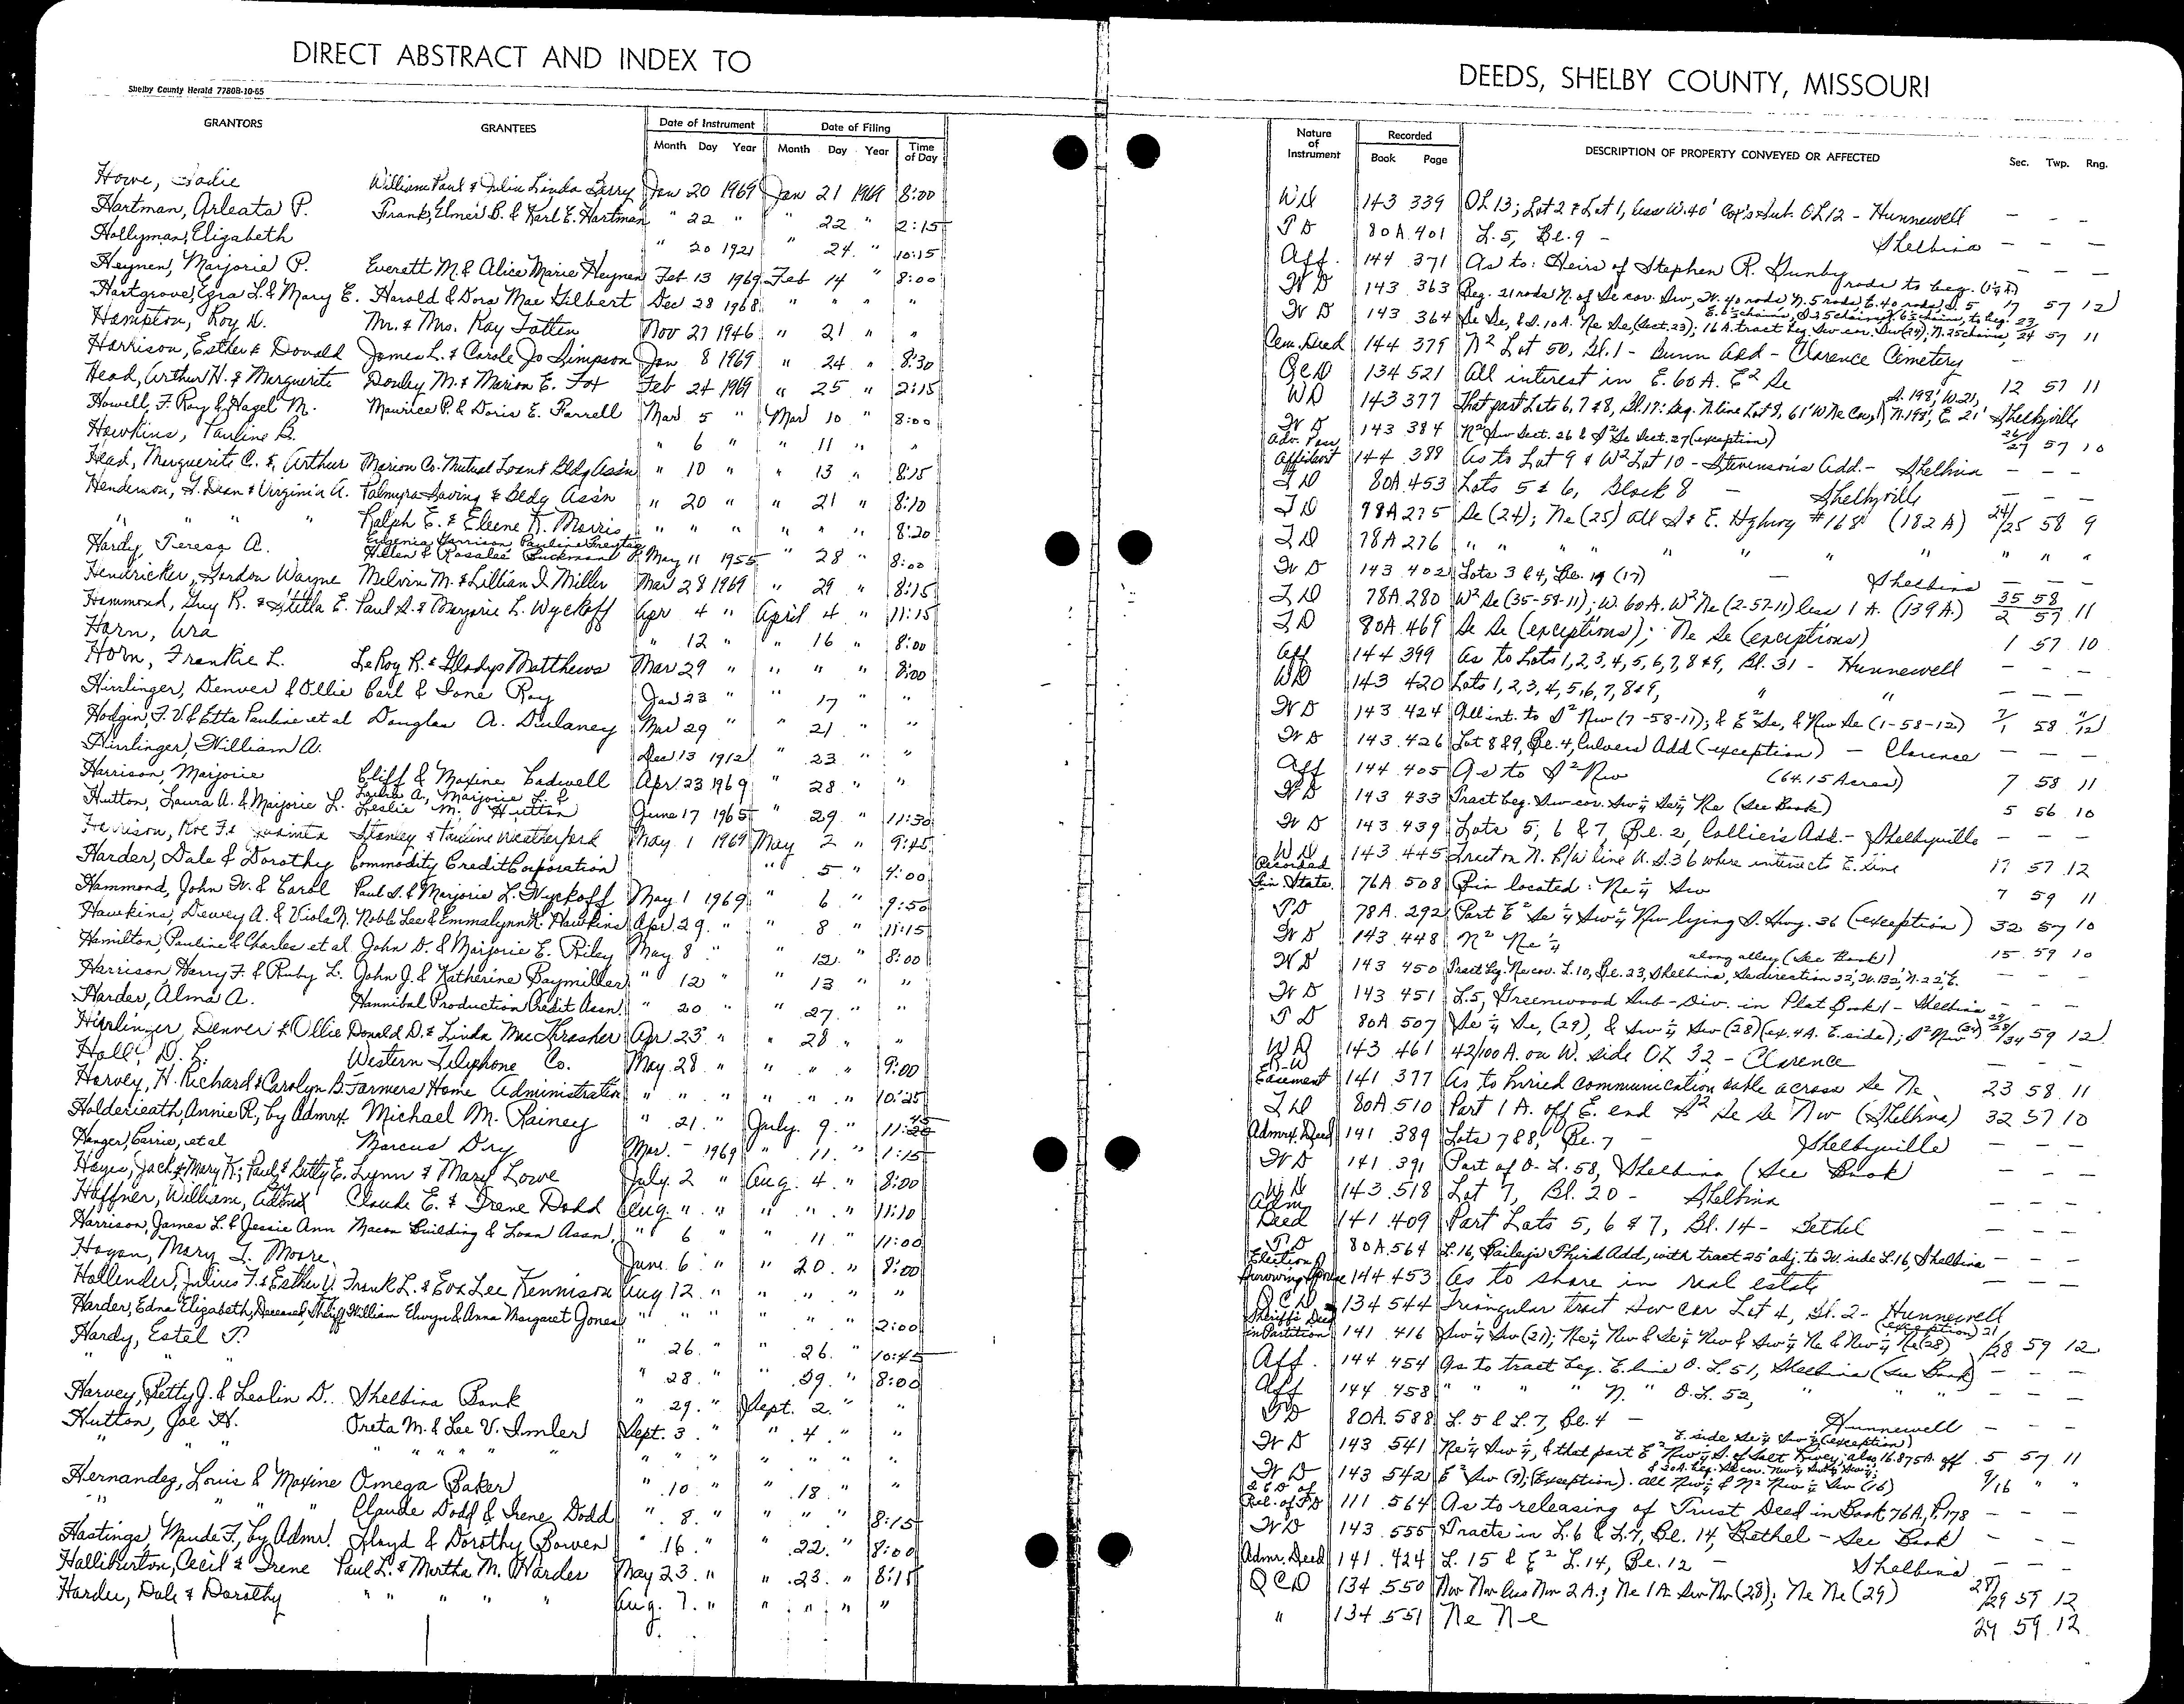 DIRECT ABSTRACT AND INDEX TO
DEEDS, SHELBY COUNTY, MISSOURI
Shelby County Herald 7780B-10-65
GRANTORS GRANTEES Date of Instrument Date of Filing
Month Day Year Month Day Year Time of Day
Nature of Instrument Recorded DESCRIPTION OF PROPERTY CONVEYED OR AFFECTED Sec. Twp. Rng.
Book Page
Howe, William Paul & Linda Jan 20 1969 Jan 21 1969 8:00
Hartman, Arleata P. Frank, Elmer B. & Karl E. Hartman " 22 " " 22 " 2:15
Hollyman, Elizabeth " 20 1921 " 24 " 10:15
Heynen, Marjorie P. Everett M. & Alice Marie Heynen Feb 13 1969 Feb 14 " 8:00
Hartgrove, Ezra L. & Mary E. Harold & Dora Mae Gilbert Dec 28 1968 " " " "
Hampton, Roy D. Mr. & Mrs. Ray Nov 27 1946 " 21 " "
Harrison, Esther & Donald James L. & Carole Jo Simpson Jan 8 1969 " 24 " 8:30
Head, Arthur H. & Marguerite M. & Marion E. Fox Feb 24 1969 " 25 " 2:15
Howell, F. Ray & Hazel M. Maurice P. & Doris E. Farrell Mar 5 " Mar 10 " 8:00
Hawkins, Pauline B. " 6 " " 11 " "
Head, Marguerite C. & Arthur Marion Co. Mutual Loan & Bldg Ass'n " 10 " " 13 " 8:15
Henderson, L. Dean & Virginia A. Palmyra Saving & Bldg Ass'n " 20 " " 21 " 8:10
" " " " Ralph E. & Eleene K. Morris " " " " " " 8:20
Hardy, Teresa A. Eugenia Harrison, Pauline
Helen & Rosalee Buckman May 11 1955 " 28 " 8:00
Hendricker, Gordon Wayne Melvin M. & Lillian I. Miller Mar 28 1969 " 29 " 8:15
Hammond, Guy R. & Stella E. Paul S. & Marjorie L. Wyckoff Apr 4 " April 4 " 11:15
Horn, Ura " 12 " " 16 " 8:00
Horn, Frankie L. LeRoy R. & Gladys Matthews Mar 29 " " " " 8:00
Hirrlinger, Denver & Ollie Carl & Ione Ray Jan 23 " " 17 " "
Hodgin, F. V. & Etta Pauline et al Douglas A. Dulaney Mar 29 " " 21 " "
Hirrlinger, William A. Dec 13 1912 " 23 " "
Harrison, Marjorie Cliff & Maxine Cadwell Apr 23 1969 " 28 " "
Hutton, Laura A. & Marjorie L. Laura A., Marjorie L. &
Leslie M. Hutton June 17 1965 " 29 " 11:30
Stanley & Pauline Weatherford May 1 1969 May 2 " 9:45
Harder, Dale & Dorothy Commodity Credit Corporation " 5 " 4:00
Hammond, John W. & Carol Paul S. & Marjorie L. Wyckoff May 1 1969 " 6 " 9:50
Hawkins, Dewey A. & Viola N. Noble Lee & Emmalynn K. Hawkins Apr 29 " " 8 " 11:15
Hamilton, Pauline & Charles et al John D. & Marjorie E. Riley May 8 " " 12 " 8:00
Harrison, Harry F. & Ruby L. John J. & Katherine Baymiller " 12 " " 13 " "
Harder, Alma A. Hannibal Production Credit Assn. " 20 " " 27 " "
Hirrlinger, Denver & Ollie Donald D. & Linda Mae Thrasher Apr 23 " " 28 " "
Hall, D. L. Western Telephone Co. May 28 " " " " 9:00
Harvey, H. Richard & Carolyn B. Farmers Home Administration " " " " " " 10:25
Holderieath, Annie R., by Admrx. Michael M. Rainey " 21 " July 9 "
Hanger, Carrie, et al Marcus Dry Mar. - 1969 " 11 " 1:15
Hayes, Jack & Mary K.; Paul & Betty E. Lynn & Mary Lowe July 2 " Aug. 4 " 8:00
Haffner, William, Claude E. & Irene Dodd Aug. " " " " " 11:10
Harrison, James L. & Jessie Ann Macon Building & Loan Assn. " 6 " " 11 " 11:00
Hogan, Mary L. Moore June 6 " " 20 " 8:00
Hollender, Julius F. & Esther V. Frank L. & Eva Lee Kennison Aug 12 " " " " "
Harder, Edna Elizabeth, Deceased, Sheriff William Elwyn & Anna Margaret Jones " " " " " 2:00
Hardy, Estel P. " 26 " " 26 " 10:45
" " " 28 " " 29 " 8:00
Harvey, Betty J. & Leslin D. Shelbina Bank " 29 " Sept. 2 " "
Hutton, Joe H. Oreta M. & Lee V. Imler Sept. 3 " " 4 " "
" " " " " " " " " " " " "
Hernandez, Louis & Maxine Omega Baker " 10 " " 18 " "
" " " Claude Dodd & Irene Dodd " 8 " " " " 8:15
Hastings, Maude F., by Admr. Floyd & Dorothy Bowen " 16 " " 22 " 8:00
Halliburton, Cecil & Irene Paul L. & Martha M. Hardes May 23 " " 23 " 8:15
Harder, Dale & Dorothy " " " " Aug. 7 " " " " "
WD 143 339 OL 13; Lot 2 & Lot 1, less W. 40' Cox's Sub. OL 12 - Hunnewell - - -
TD 80A 401 L. 5, Bl. 9 - Shelbina - - -
Aff. 144 371 As to: Heirs of Stephen R. Gunby - - -
WD 143 363 Beg. 21 rods N. of Se cor. Sw, W. 40 rods N. 5 rods, E. 40 rods, S. 5 rods to beg. 17 57 12
WD 143 364 Se Se, & S. 10 A. Ne Se, (Sect. 23); 16 A. tract beg. Sw cor. Sw (24), 23 24 57 11
Cem. Deed 144 379 N² Lot 50, Bl. 1 - Bunn Add - Clarence Cemetery
QCD 134 521 All interest in E. 60 A. E² Se 12 57 11
WD 143 377 That part Lots 6, 7 & 8, Bl. 17: beg. N line Lot 8, 61' W Ne Cor, S. 198', W. 21, N. 198', E 21' Shelbyville
WD 143 384 N² Sw Sect. 26 & S² Se Sect. 27 (exception) 26/27 57 10
Affidavit 144 388 As to Lot 9 & W² Lot 10 - Stevenson's Add. - Shelbina - - -
TD 80A 453 Lots 5 & 6, Block 8 - Shelbyville - - -
TD 78A 275 Se (24); Ne (25) all S & E. Highway #168 (182 A) 24/25 58 9
TD 78A 276 " " " " " " " " "
WD 143 402 Lots 3 & 4, Bl. 19 (17) - Shelbina - - -
TD 78A 280 W² Se (35-58-11); W. 60 A. W² Ne (2-57-11) less 1 A. (139 A) 35 58 2 57 11
TD 80A 469 Se Se (exceptions); Ne Se (exceptions) 1 57 10
Aff 144 399 As to Lots 1, 2, 3, 4, 5, 6, 7, 8 & 9, Bl. 31 - Hunnewell - - -
WD 143 420 Lots 1, 2, 3, 4, 5, 6, 7, 8 & 9, " " - - -
WD 143 424 All int. to S² Nw (7-58-11); & E² Se, & Nw Se (1-58-12) 7/1 58 11/12
WD 143 426 Lot 8 & 9, Bl. 4, Culvers Add (exception) - Clarence - - -
Aff 144 405 As to S² Nw (64.15 Acres) 7 58 11
WD 143 433 Tract beg. Sw cor. Sw¼ Se¼ Ne (See Book) 5 56 10
WD 143 439 Lots 5, 6 & 7, Bl. 2, Collier's Add. - Shelbyville - - -
WD 143 445 Tract on N. R/W line U.S. 36 where intersects E. line 17 57 12
Recorded Fin. State. 76A 508 Bin located: Ne¼ Sw 7 59 11
TD 78A 292 Part E² Se¼ Sw¼ Nw lying S. Hwy. 36 (exception) 32 57 10
WD 143 448 N² Ne¼ 15 59 10
WD 143 450 Tract beg. Ne cor. L. 10, Bl. 23, Shelbina, Se direction 22', W. 132', N. 22', E. along alley (See Book) - - -
WD 143 451 L. 5, Greenwood Sub-Div. in Plat Book 1 - Shelbina - - -
TD 80A 507 Se¼ Se, (29), & Sw¼ Sw (28) (ex. 4 A. E. side); S² Nw (34) 29/28/34 59 12
WD 143 461 42/100 A. on W. side OL 32 - Clarence - - -
R-W Easement 141 377 As to buried communication cable across Se Ne 23 58 11
TD 80A 510 Part 1 A. off E. end S² Se Se Nw (Shelbina) 32 57 10
Admrx. Deed 141 389 Lots 7 & 8, Bl. 7 - Shelbyville - - -
WD 141 391 Part of O. L. 58, Shelbina (See Book - - -
WD 143 518 Lot 7, Bl. 20 - Shelbina - - -
Adm Deed 141 409 Part Lots 5, 6 & 7, Bl. 14 - Bethel - - -
TD 80A 564 L. 16, Bailey's Third Add, with tract 25' adj. to W. side L. 16, Shelbina - - -
Election of 144 453 As to share in real estate - - -
QCD 134 544 Triangular tract Sw cor Lot 4, Bl. 2 - Hunnewell
Sheriff's Deed in Partition 141 416 Sw¼ Sw (21); Ne¼ Nw & Se¼ Nw & Sw¼ Ne & Nw¼ Ne (28) (exception) 21/28 59 12
Aff. 144 454 As to tract beg. E. line O. L. 51, Shelbina (See Book) - - -
Aff 144 458 " " " " N. " O. L. 52, " " " - - -
TD 80A 588 L. 5 & L. 7, Bl. 4 - Hunnewell - - -
WD 143 541 Ne¼ Sw¼, & that part E² Nw¼ S. of Salt River; also 16.875 A. off E. side Se¼ Sw¼ (exception) 5 57 11
WD 143 542 E² Sw (9); (Exception). All Nw¼ & N² Nw¼ Sw (16) 9/16 " "
Rel. of TD 111 564 As to releasing of Trust Deed in Book 76A, P. 178 - - -
WD 143 555 Tracts in L. 6 & L. 7, Bl. 14, Bethel - See Book - - -
Admr. Deed 141 424 L. 15 & E² L. 14, Bl. 12 - Shelbina - - -
QCD 134 550 Nw Nw less Nw 2 A.; Ne 1 A. Sw Nw (28); Ne Ne (29) 28/29 59 12
" 134 551 Ne Ne 29 59 12